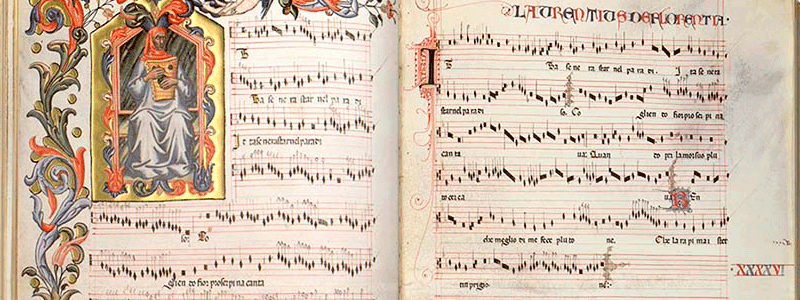 ta se ne ra star nel pa ra di
I ta se nera star nel para di
so. Co
glien do fior proser pi na canta
LAURENTIUS DE FLORENTIA
I ta se ne ra star nel pa ra di. I ta se nera
star nel para di so. Co glien do fior pro ser pi na
can ta ua. Quan do pri la morsus plu
ua En
che meglio di me fece plu to ne. Che la ra pi mai stet
tin prigio ne.
XXXXVI